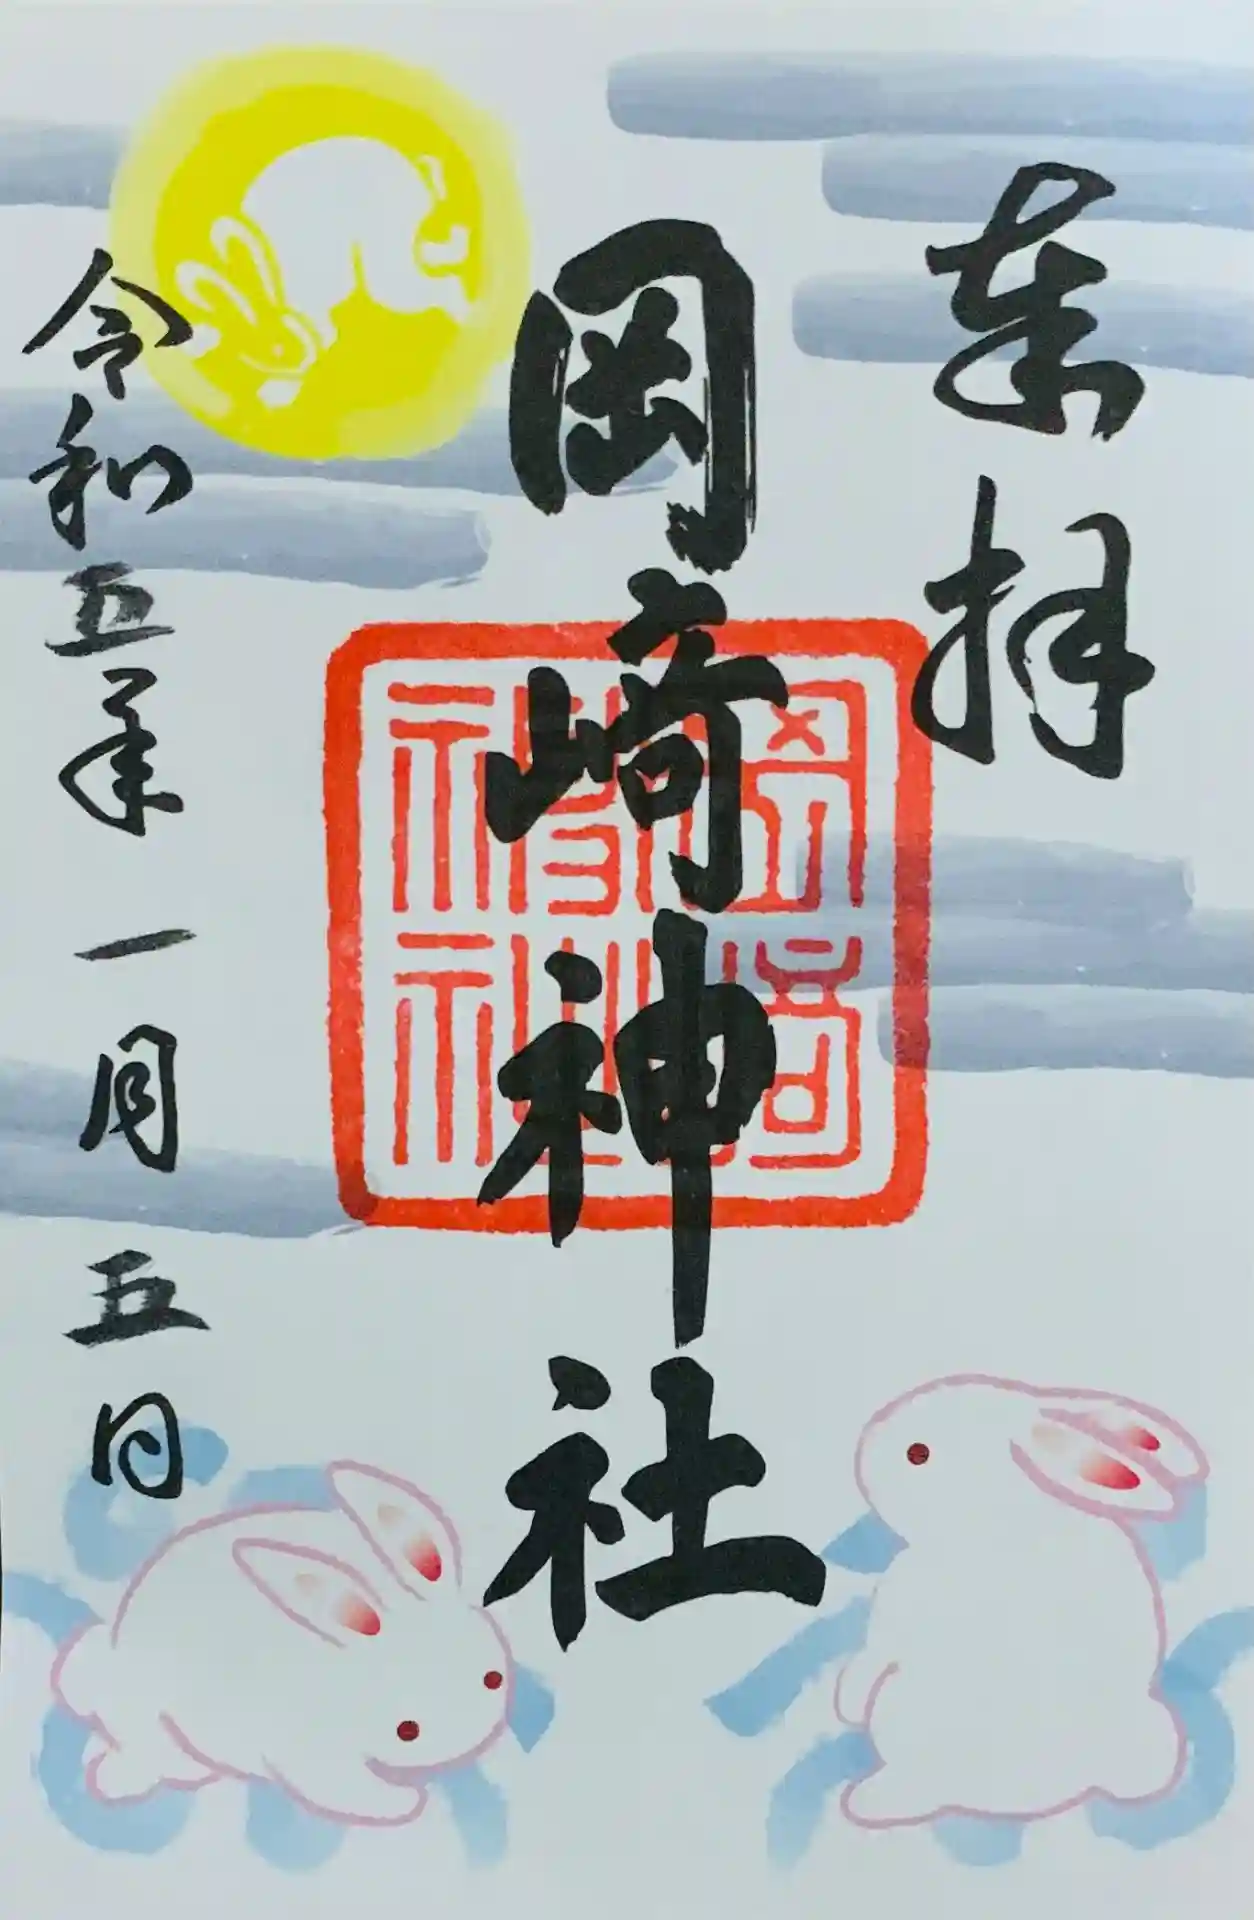 奉拝
岡崎神社
岡崎神社
令和五年一月五日